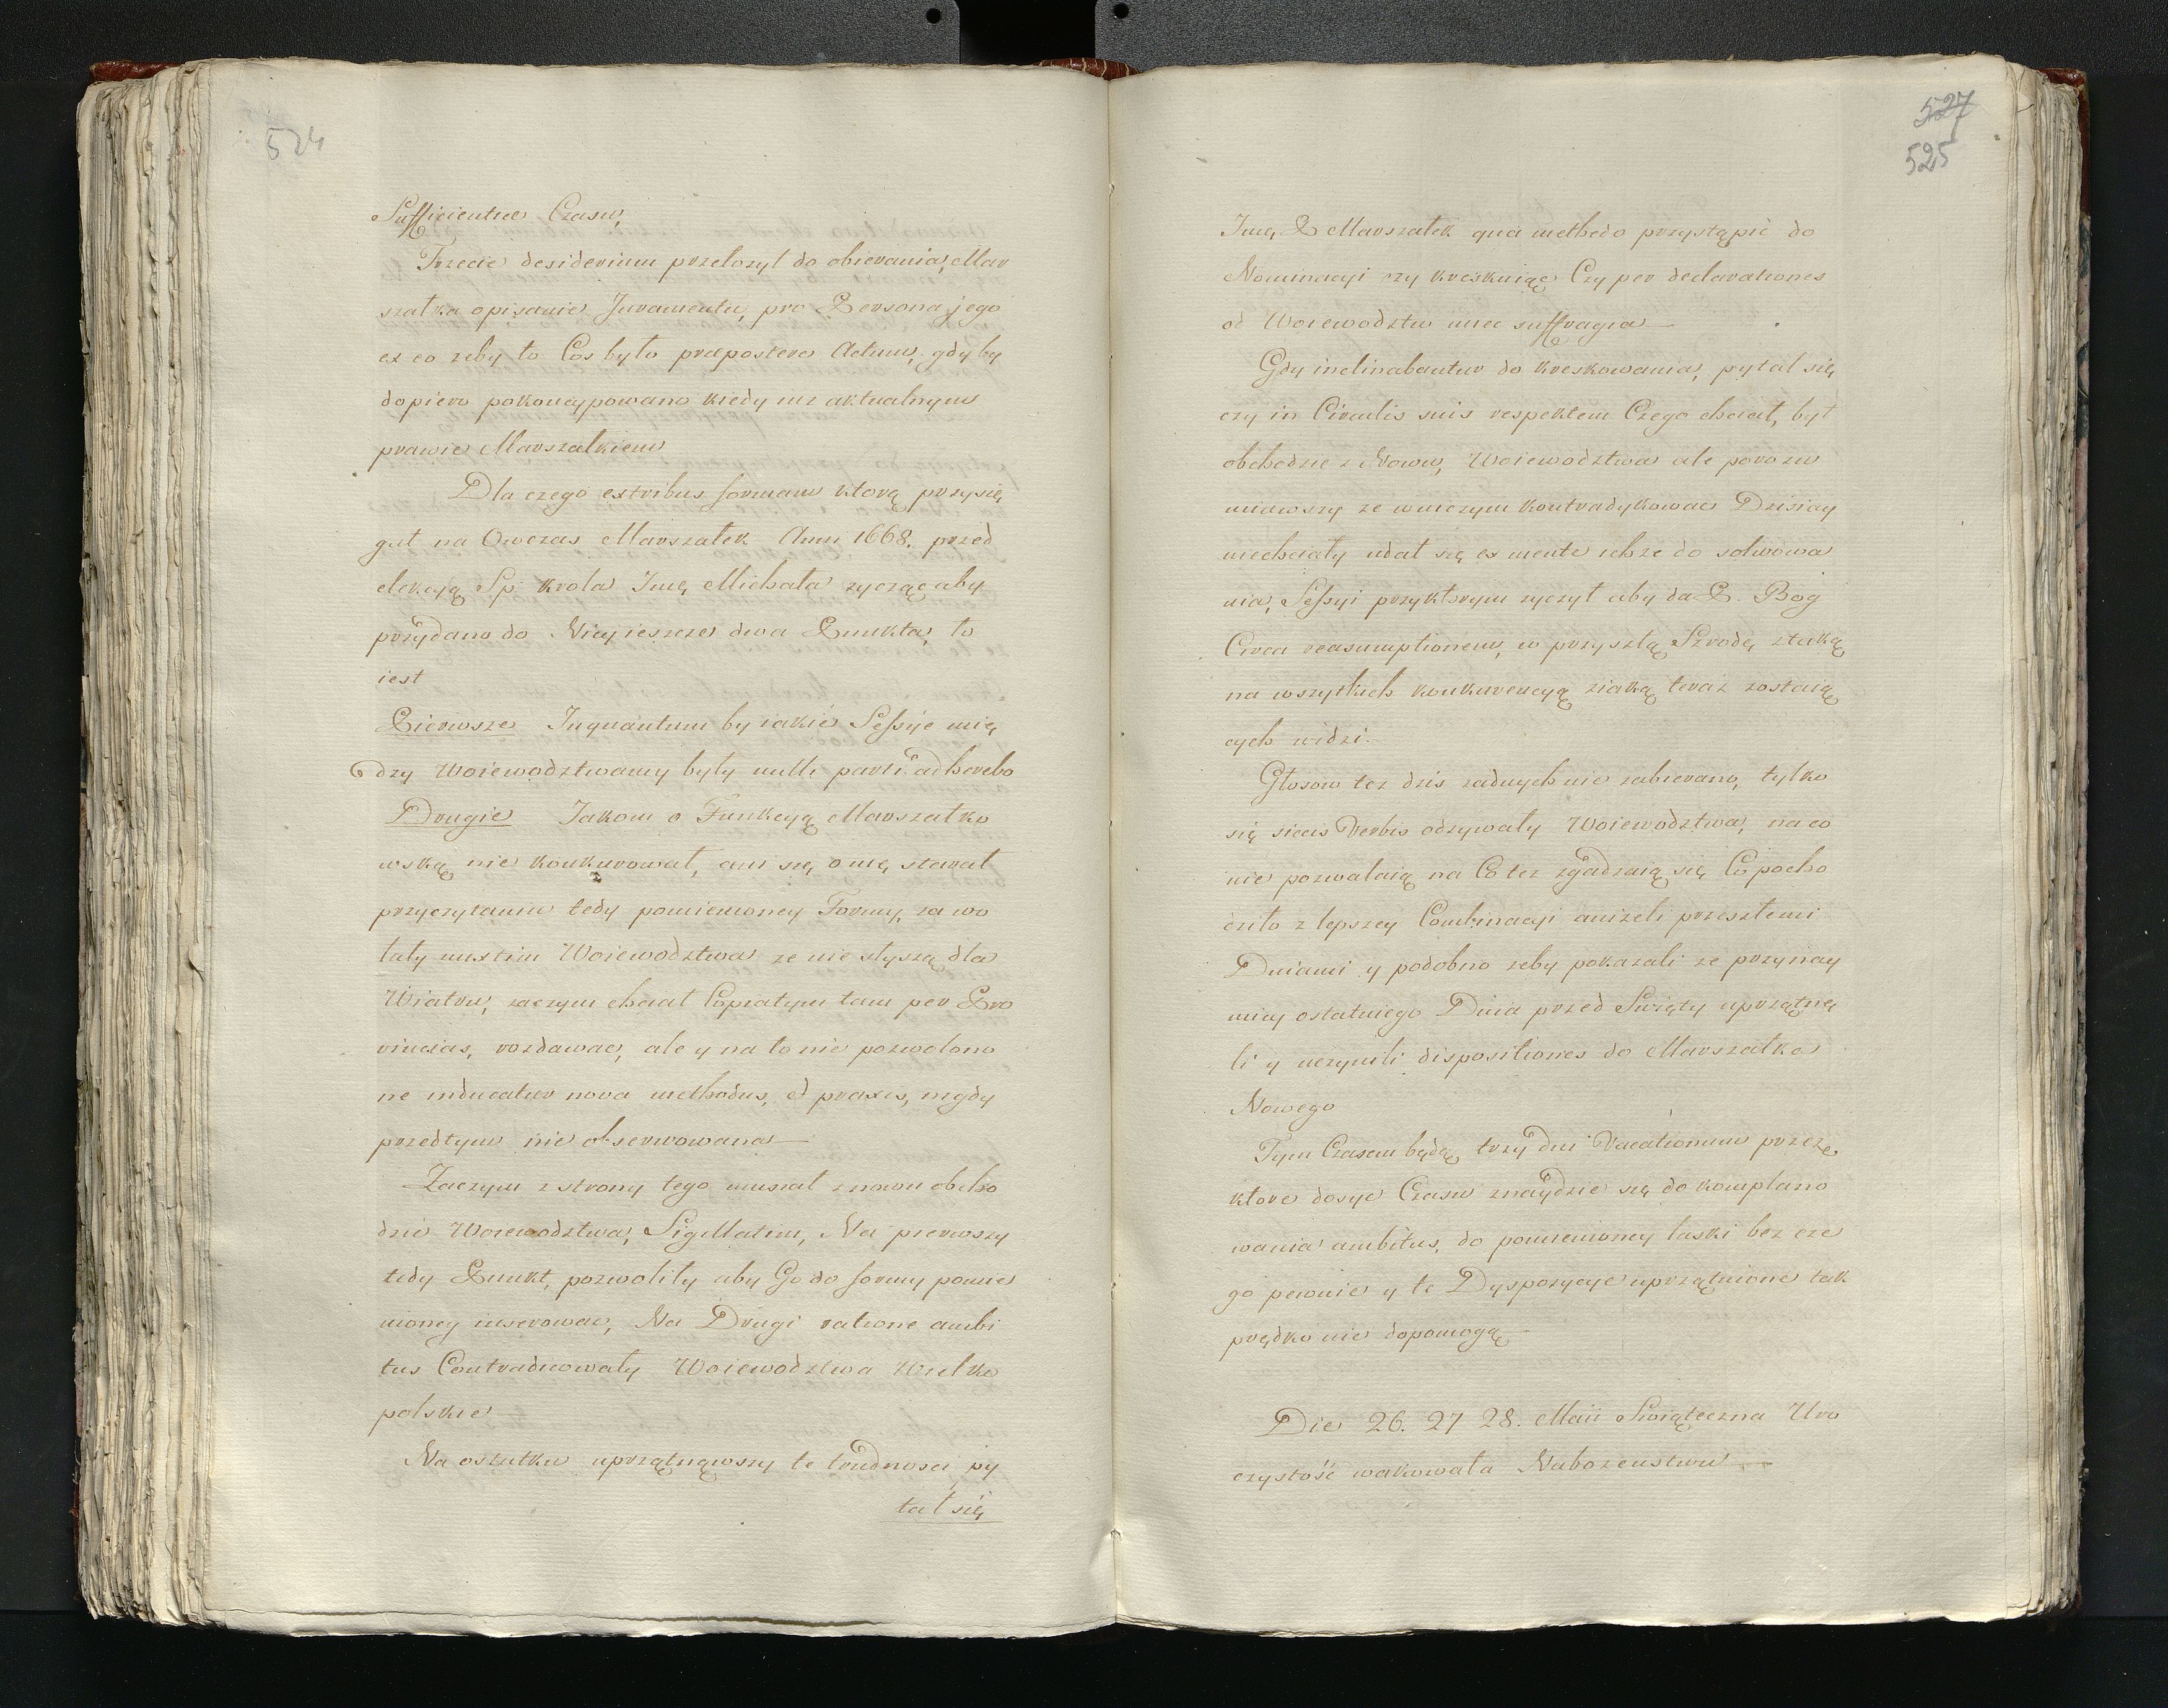 524
Sufficientae Czasu,
Trzecie desiderium przelozyl do obierania, Mar
szałka opisanie Juramentu, pro Persona jego
ex eo zeby to Cos było praepostere Actum, gdyby
dopiero pokoncypowano kiedy iuz aktualnym
prawie Marszalkiem
Dla czego extribus formam ktorą przysię
gał na Owczas Marszałek Anni 1668. przed
elekcyą Sp. krola Jmę Michała zycząc aby
przydano do Niey ieszcze dwa Punkta, to
iest
Pierwsze Inquantum by iakie Sessye mię
dzy Woiewodztwamy były nulli parti adherebo
Drugie Jakom o Funkcyą Marszałko
wską nie konkurowat, ani się o nię starał
przyczytaniu tedy pomienioney Formy, zawo
łały Woiewodztwa ze nie słyszą dla
Wiatru, zaczym chciał Copiatym tam per Pro
vincias, rozdawac, ale y na to nie pozwolono
ne inducatur nova methodus, et praxis, nigdy
przedtym nie obserwowana
Zaczym z strony tego musiał znowu obcho
dzic Woiewodztwa, Sigillatim, Na pierwszy
tedy Punkt, pozwoliły aby Go do formy pomie
nioney inserowac, Na Drugi ratione ambi
tus Contradicowały Woiewodztwa Wielko
polskie
Na ostatku uprzątnąwszy te trudnosci py
tał się
527
525
Jmę P Marszałek qua methodo przystąpić do
Nominacyi czy kreskuiąc Czy per declarationes
od Woiewodztw miec suffragia
Gdy inclinabantur do kreskowania, pytał się
czy in Circulis suis respektem Czego chciał, był
obchodzic z Nowu, Woiewodztwa ale porozu
miawszy ze wniczym kontradykowac Dzisiay
niechciały udał się ex mente ichze do solwowa
nia, Sessyi przyktorym zyczył aby da P. Bog
Circa reasumptionem, w przyszłą Szrodę ztaką
na wszytkich konkurencyą ziaką teraz zostaią
cych widzi.
Głosow tez dzis zadnych nie zabierano, tylko
się siccis Verbis odzywały Woiewodztwa, na co
nie pozwalaią na Co tez zgadzaią się Co pocho
dziło z lepszey Combinacyi anizeli przeszłemi
Dniami y podobno zeby pokazali ze przynay
mniey ostatniego Dnia przed Swięty uprzątnę
li y uczynili dispositiones do Marszałka
Nowego
Tym Czasem będą trzy dni Vacationum przeze
ktore dosyc Czasu znaydzie się do komplano
wania ambitus, do pomienioney laski bez cze
go pewnie y te Dyspozycye uprzątnione tak
prędko nie dopomogą
Die 26. 27 28. Maii Swiąteczna Uro
czystość wakowała Nabozenstwu